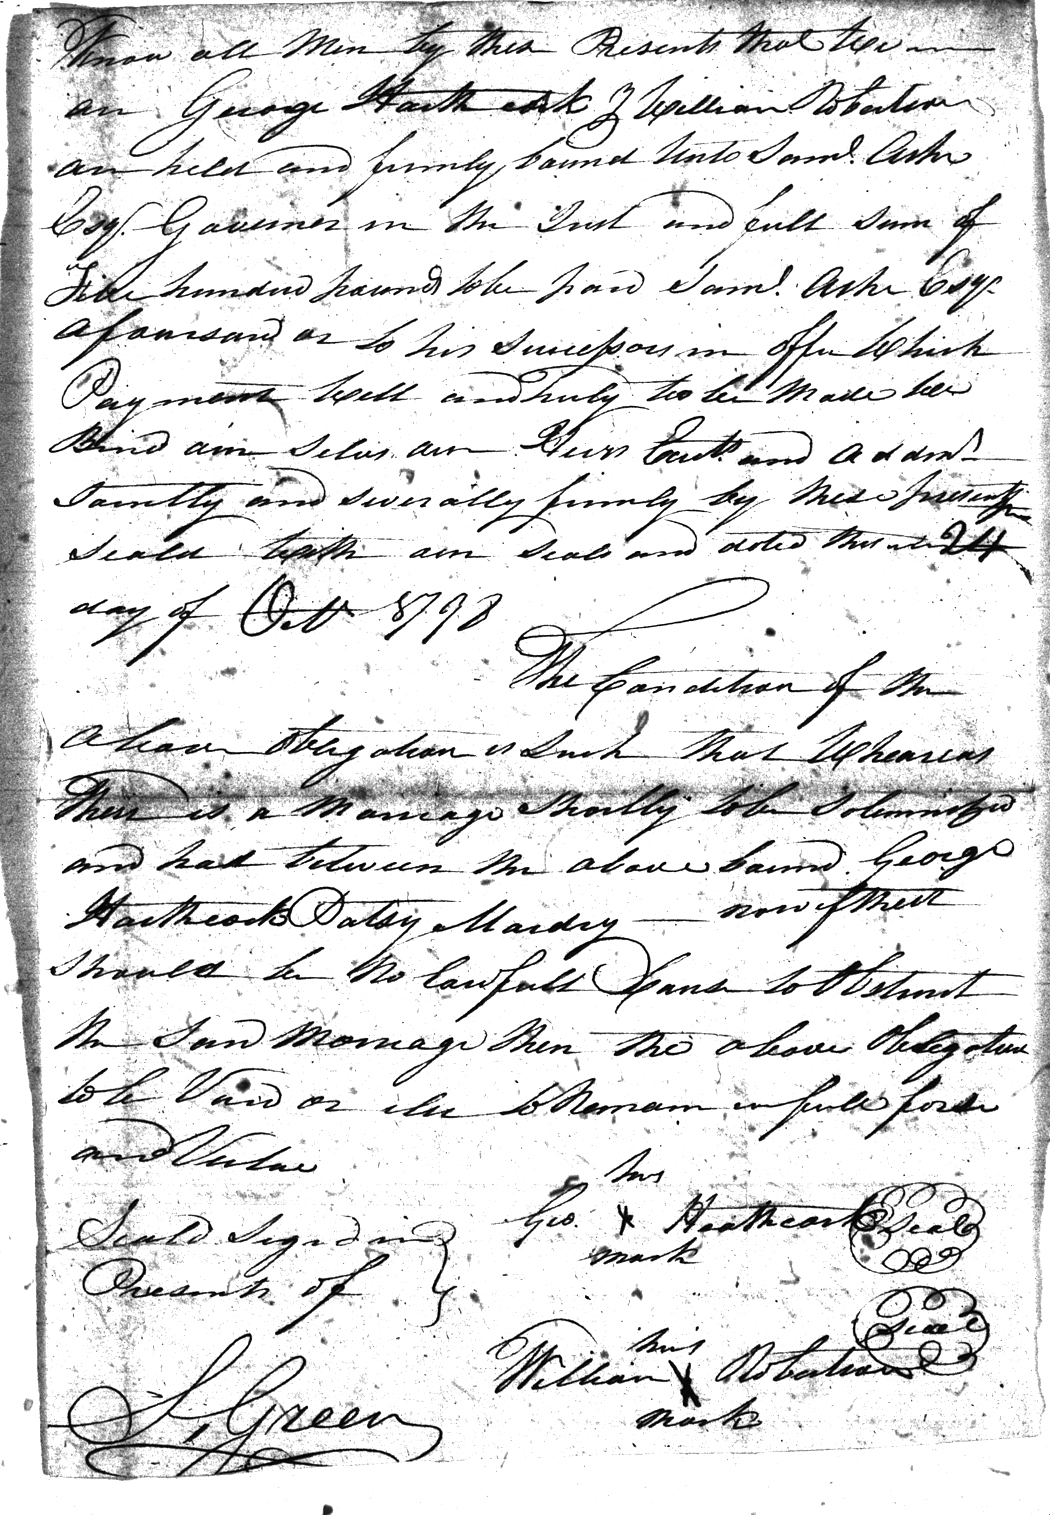 Know all Men by these Presents that we
are George Haithcock & William Robertson
are held and firmly bound unto Saml. Ashe
Esqr. Governer in the Just and full sum of
Five hundred pounds to be paid Saml. Ashe Esqr.
afoursaid or to his successors in offe Which
Payment well and truly to be Made we
Bind our selves our Heirs Exets and Addmrs
Jointly and severally firmly by these presents
Seald with our seals and dated this 24
day of Octr 1798
The Condition of the
above obligation is Such that Wheareas
There is a Marriage Shortly to be Solemnized
and had between the above bound George
Haithcock Patsy Mardry now if theit
should be No lawfull Cause to Obstruct
the Said Marriage then the above Obligation
to be Void or else to Remain in full force
and Virtue
Seald Signd in
Presents of
his
Geo. X Heathcock Seal
mark
Seal
his
William X Robertson
mark
S, Green